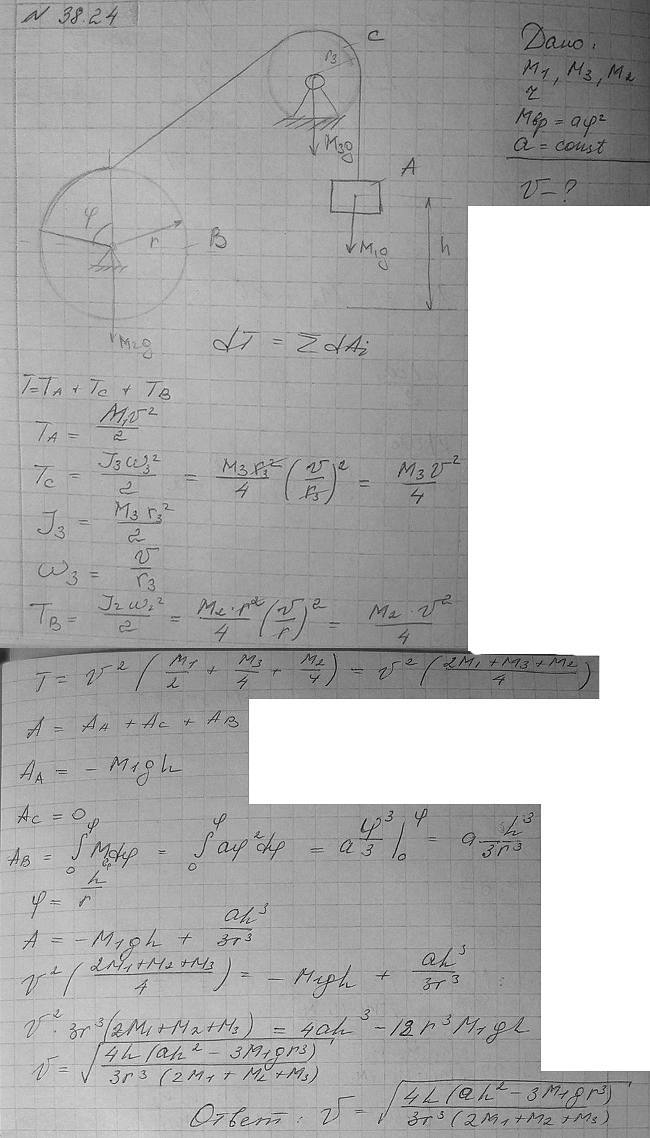 N 38.24
C
r₃
M₃g
A
M₁g
h
φ
r
B
M₂g
Дано:
M₁, M₃, M₂
r
Mвр = aφ²
a = const
v - ?
dT = Σ dAᵢ
T = T_A + T_C + T_B
T_A = M₁v²/2
T_C = J₃ω₃²/2 = M₃r₃²/4 (v/r₃)² = M₃v²/4
J₃ = M₃r₃²/2
ω₃ = v/r₃
T_B = J₂ω₂²/2 = M₂·r²/4 (v/r)² = M₂·v²/4
T = v² (M₁/2 + M₃/4 + M₂/4) = v² ((2M₁+M₃+M₂)/4)
A = A_A + A_C + A_B
A_A = - M₁gh
A_C = 0
A_B = ∫₀^φ Mвр dφ = ∫₀^φ aφ²dφ = a φ³/3 |₀^φ = a h³/3r³
φ = h/r
A = - M₁gh + ah³/3r³
v² ((2M₁+M₂+M₃)/4) = - M₁gh + ah³/3r³
v²·3r³(2M₁+M₂+M₃) = 4ah³ - 12r³M₁gh
v = √(4h(ah² - 3M₁gr³)/3r³(2M₁+M₂+M₃))
Ответ: v = √(4h(ah² - 3M₁gr³)/3r³(2M₁+M₂+M₃))